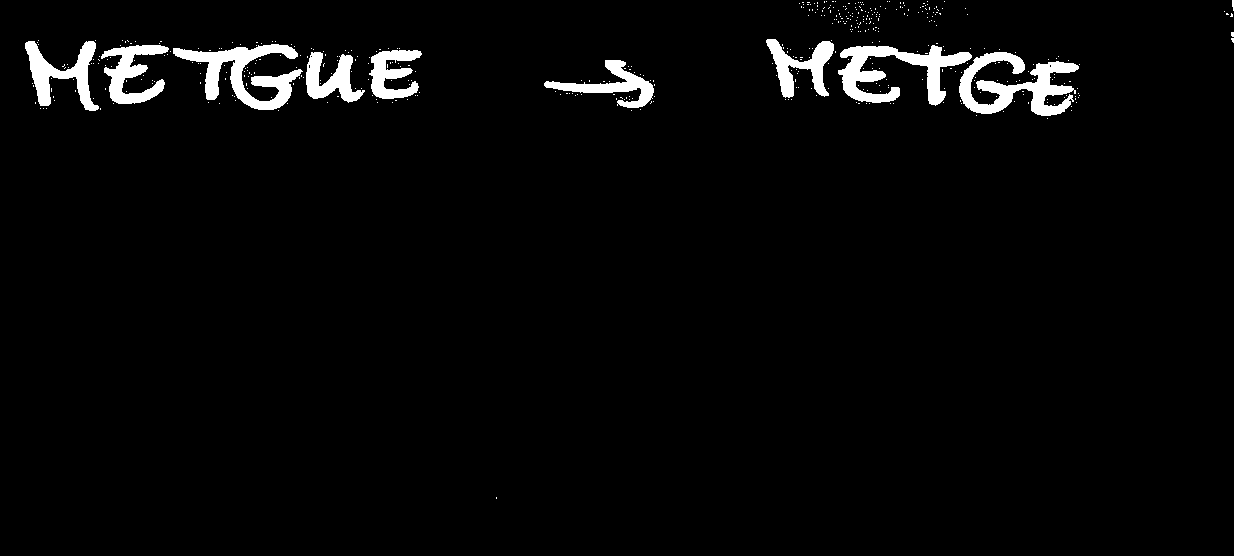 METGUE → METGE